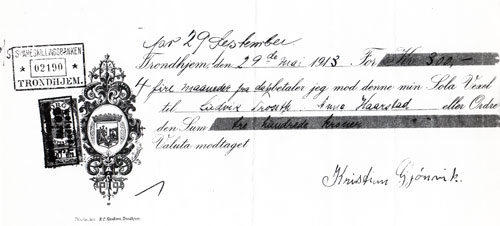 pr 29 September
SPARESKILLINGSBANKEN
* 02190 *
TRONDHJEM.
Trondhjem, den 29de mai 1913 For Kr 300,-
4 fire maaneder fra dato betaler jeg mod denne min Sola Vexel
til Ludvik Anna Haarstad eller Ordre
den Sum tre hundrede kroner
Valuta modtaget
Kristian Gjönvik.